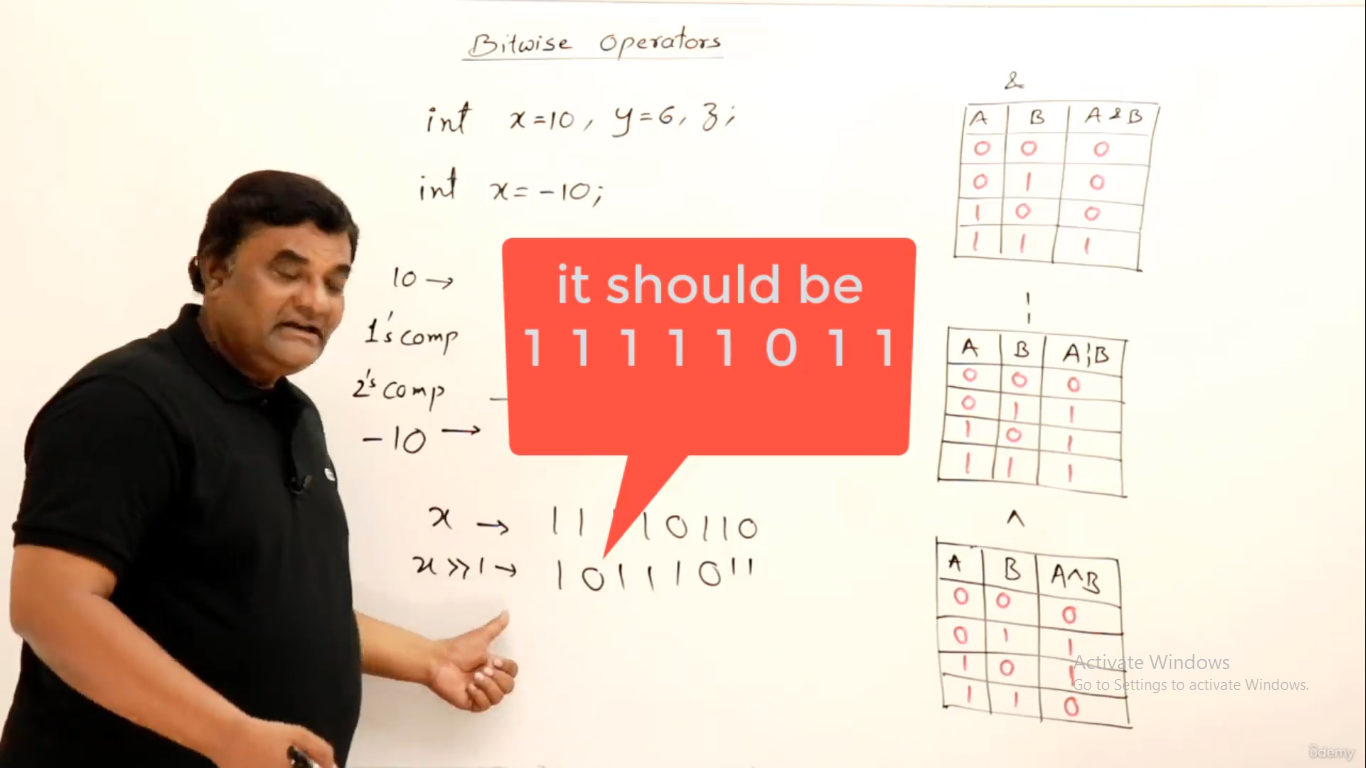 Bitwise Operators
int x=10, y=6, z;
int x=-10;
10 →
1's comp
2's comp
-10 →
it should be
1 1 1 1 1 0 1 1
x → 1 1 1 0 1 1 0
x >> 1 → 1 0 1 1 1 0 1 1
&
A B A & B
0 0 0
0 1 0
1 0 0
1 1 1
¦
A B A¦B
0 0 0
0 1 1
1 0 1
1 1 1
^
A B A^B
0 0 0
0 1 1
1 0 1
1 1 0
Activate Windows
Go to Settings to activate Windows.
ûdemy